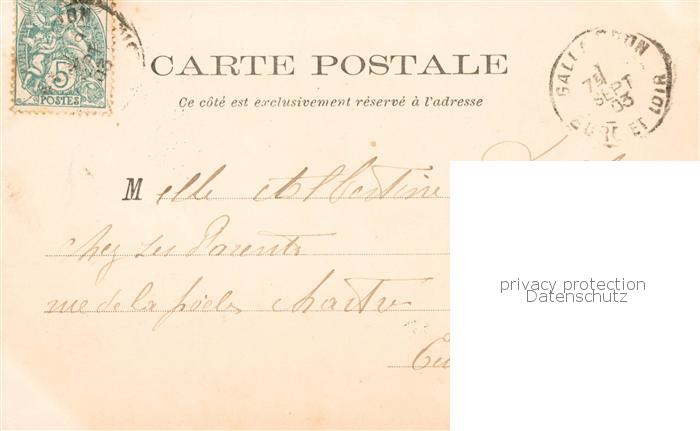 5
POSTES
CARTE POSTALE
Ce côté est exclusivement réservé à l'adresse
GALLARDON
7E
SEPT
03
EURE ET LOIR
Melle Albertine
chez ses Parents
rue de la poële Chartre
Eu
privacy protection
Datenschutz